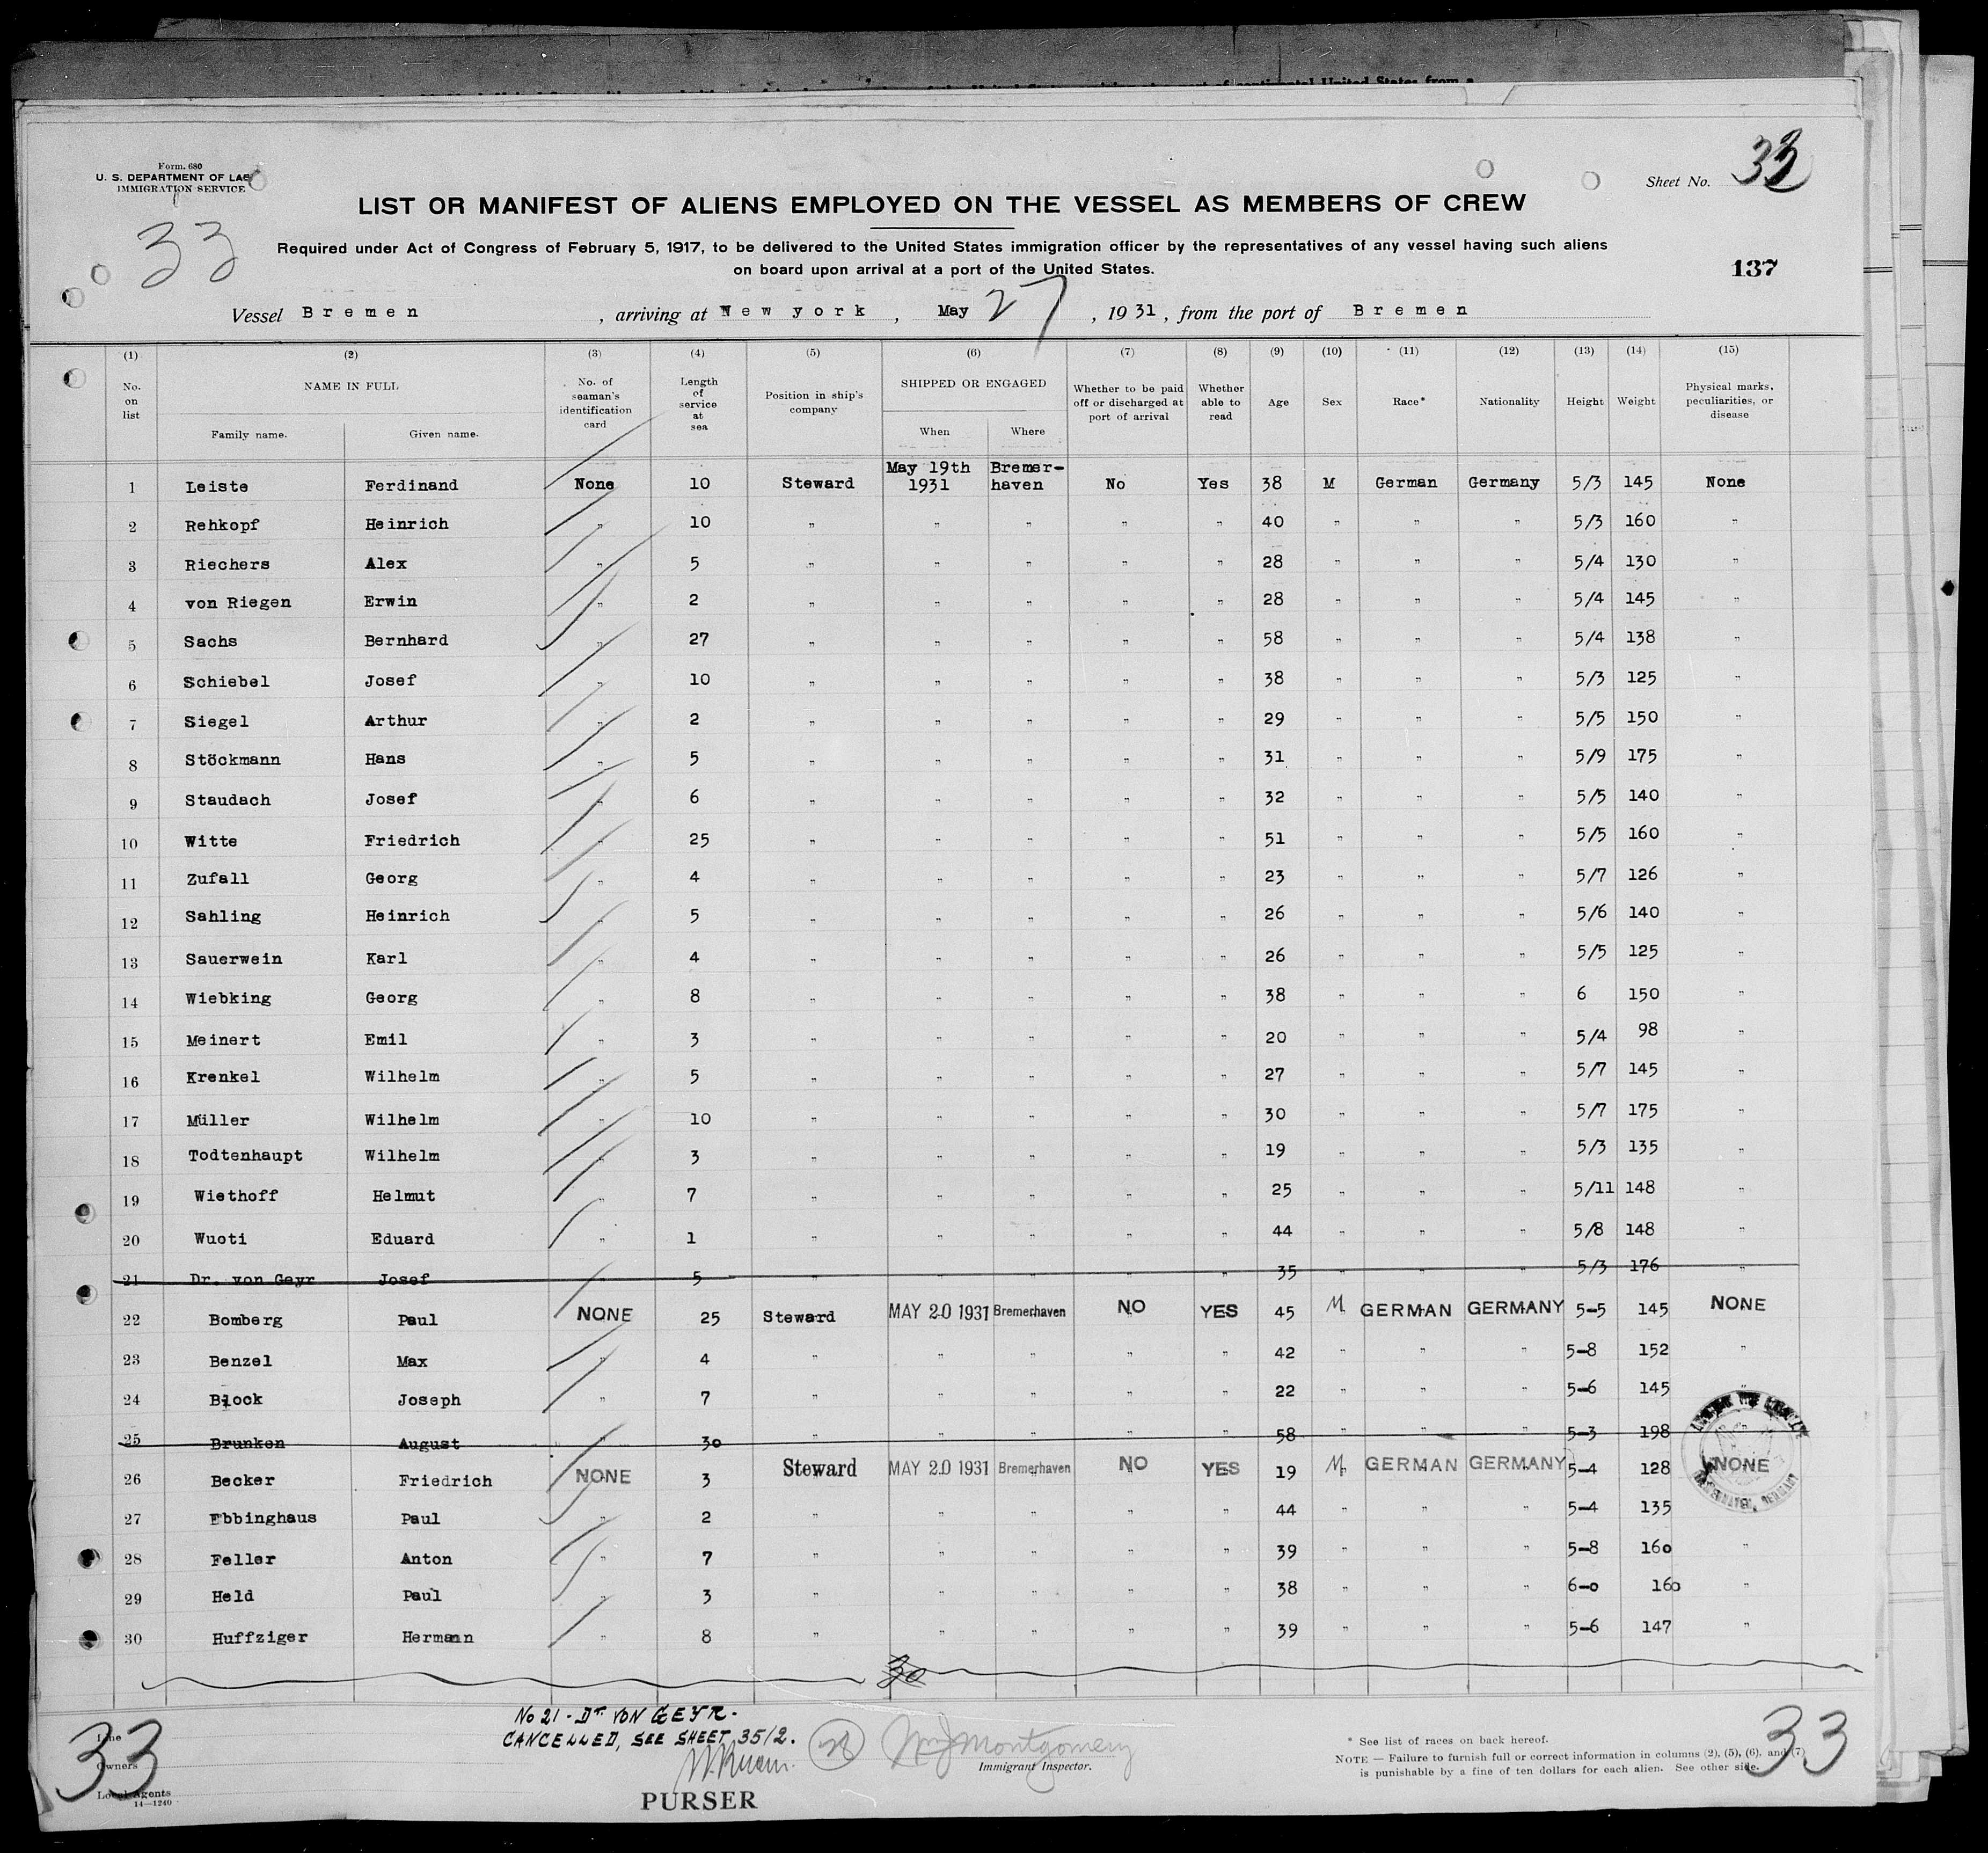 Form. 680
U. S. DEPARTMENT OF LAB
IMMIGRATION SERVICE
33
Sheet No. 33
LIST OR MANIFEST OF ALIENS EMPLOYED ON THE VESSEL AS MEMBERS OF CREW
Required under Act of Congress of February 5, 1917, to be delivered to the United States immigration officer by the representatives of any vessel having such aliens
on board upon arrival at a port of the United States.
137
Vessel Bremen, arriving at New york, May 27, 1931, from the port of Bremen
(1) (2) (3) (4) (5) (6) (7) (8) (9) (10) (11) (12) (13) (14) (15)
No. on list NAME IN FULL Family name. Given name. No. of seaman's identification card Length of service at sea Position in ship's company SHIPPED OR ENGAGED When Where Whether to be paid off or discharged at port of arrival Whether able to read Age Sex Race* Nationality Height Weight Physical marks, peculiarities, or disease
1 Leiste Ferdinand None 10 Steward May 19th 1931 Bremer-haven No Yes 38 M German Germany 5/3 145 None
2 Rehkopf Heinrich " 10 " " " " " 40 " " " 5/3 160 "
3 Riechers Alex " 5 " " " " " 28 " " " 5/4 130 "
4 von Riegen Erwin " 2 " " " " " 28 " " " 5/4 145 "
5 Sachs Bernhard " 27 " " " " " 58 " " " 5/4 138 "
6 Schiebel Josef " 10 " " " " " 38 " " " 5/3 125 "
7 Siegel Arthur " 2 " " " " " 29 " " " 5/5 150 "
8 Stöckmann Hans " 5 " " " " " 31 " " " 5/9 175 "
9 Staudach Josef " 6 " " " " " 32 " " " 5/5 140 "
10 Witte Friedrich " 25 " " " " " 51 " " " 5/5 160 "
11 Zufall Georg " 4 " " " " " 23 " " " 5/7 126 "
12 Sahling Heinrich " 5 " " " " " 26 " " " 5/6 140 "
13 Sauerwein Karl " 4 " " " " " 26 " " " 5/5 125 "
14 Wiebking Georg " 8 " " " " " 38 " " " 6 150 "
15 Meinert Emil " 3 " " " " " 20 " " " 5/4 98 "
16 Krenkel Wilhelm " 5 " " " " " 27 " " " 5/7 145 "
17 Müller Wilhelm " 10 " " " " " 30 " " " 5/7 175 "
18 Todtenhaupt Wilhelm " 3 " " " " " 19 " " " 5/3 135 "
19 Wiethoff Helmut " 7 " " " " " 25 " " " 5/11 148 "
20 Wuoti Eduard " 1 " " " " " 44 " " " 5/8 148 "
21 Dr. von Geyr Josef " 5 " " " " " 35 " " " 5/3 176 "
22 Bomberg Paul NONE 25 Steward MAY 20 1931 Bremerhaven NO YES 45 M GERMAN GERMANY 5-5 145 NONE
23 Benzel Max " 4 " " " " " 42 " " " 5-8 152 "
24 Block Joseph " 7 " " " " " 22 " " " 5-6 145 "
25 Brunken August " 30 " " " " " 58 " " " 5-3 198 "
26 Becker Friedrich NONE 3 Steward MAY 20 1931 Bremerhaven NO YES 19 M GERMAN GERMANY 5-4 128 NONE
27 Ebbinghaus Paul " 2 " " " " " 44 " " " 5-4 135
28 Feller Anton " 7 " " " " " 39 " " " 5-8 160 "
29 Held Paul " 3 " " " " " 38 " " " 6-0 160 "
30 Huffziger Hermann " 8 " " " " " 39 " " " 5-6 147 "
30
No 21 - Dr. VON GEYR -
CANCELLED, SEE SHEET 35/2.
33
Line
Owners
Local Agents
14—1240
PURSER
Wm J Montgomery
Immigrant Inspector.
* See list of races on back hereof.
NOTE — Failure to furnish full or correct information in columns (2), (5), (6), and (7)
is punishable by a fine of ten dollars for each alien. See other side.
33